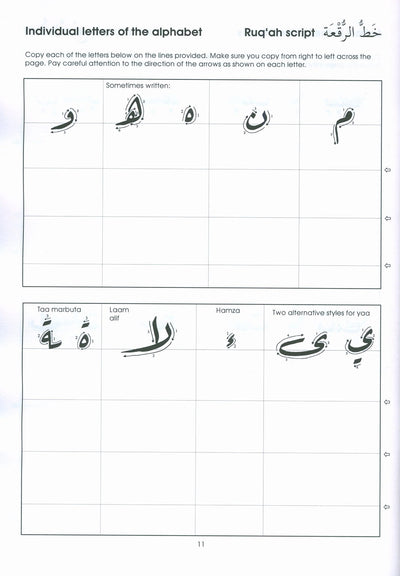 Individual letters of the alphabet Ruq'ah script خَطُّ الرُّقْعَة
Copy each of the letters below on the lines provided. Make sure you copy from right to left across the
page. Pay careful attention to the direction of the arrows as shown on each letter.
Sometimes written:
م ن ه ه و
Taa marbuta Laam alif Hamza Two alternative styles for yaa
ي ى ء لا ة ـة
11